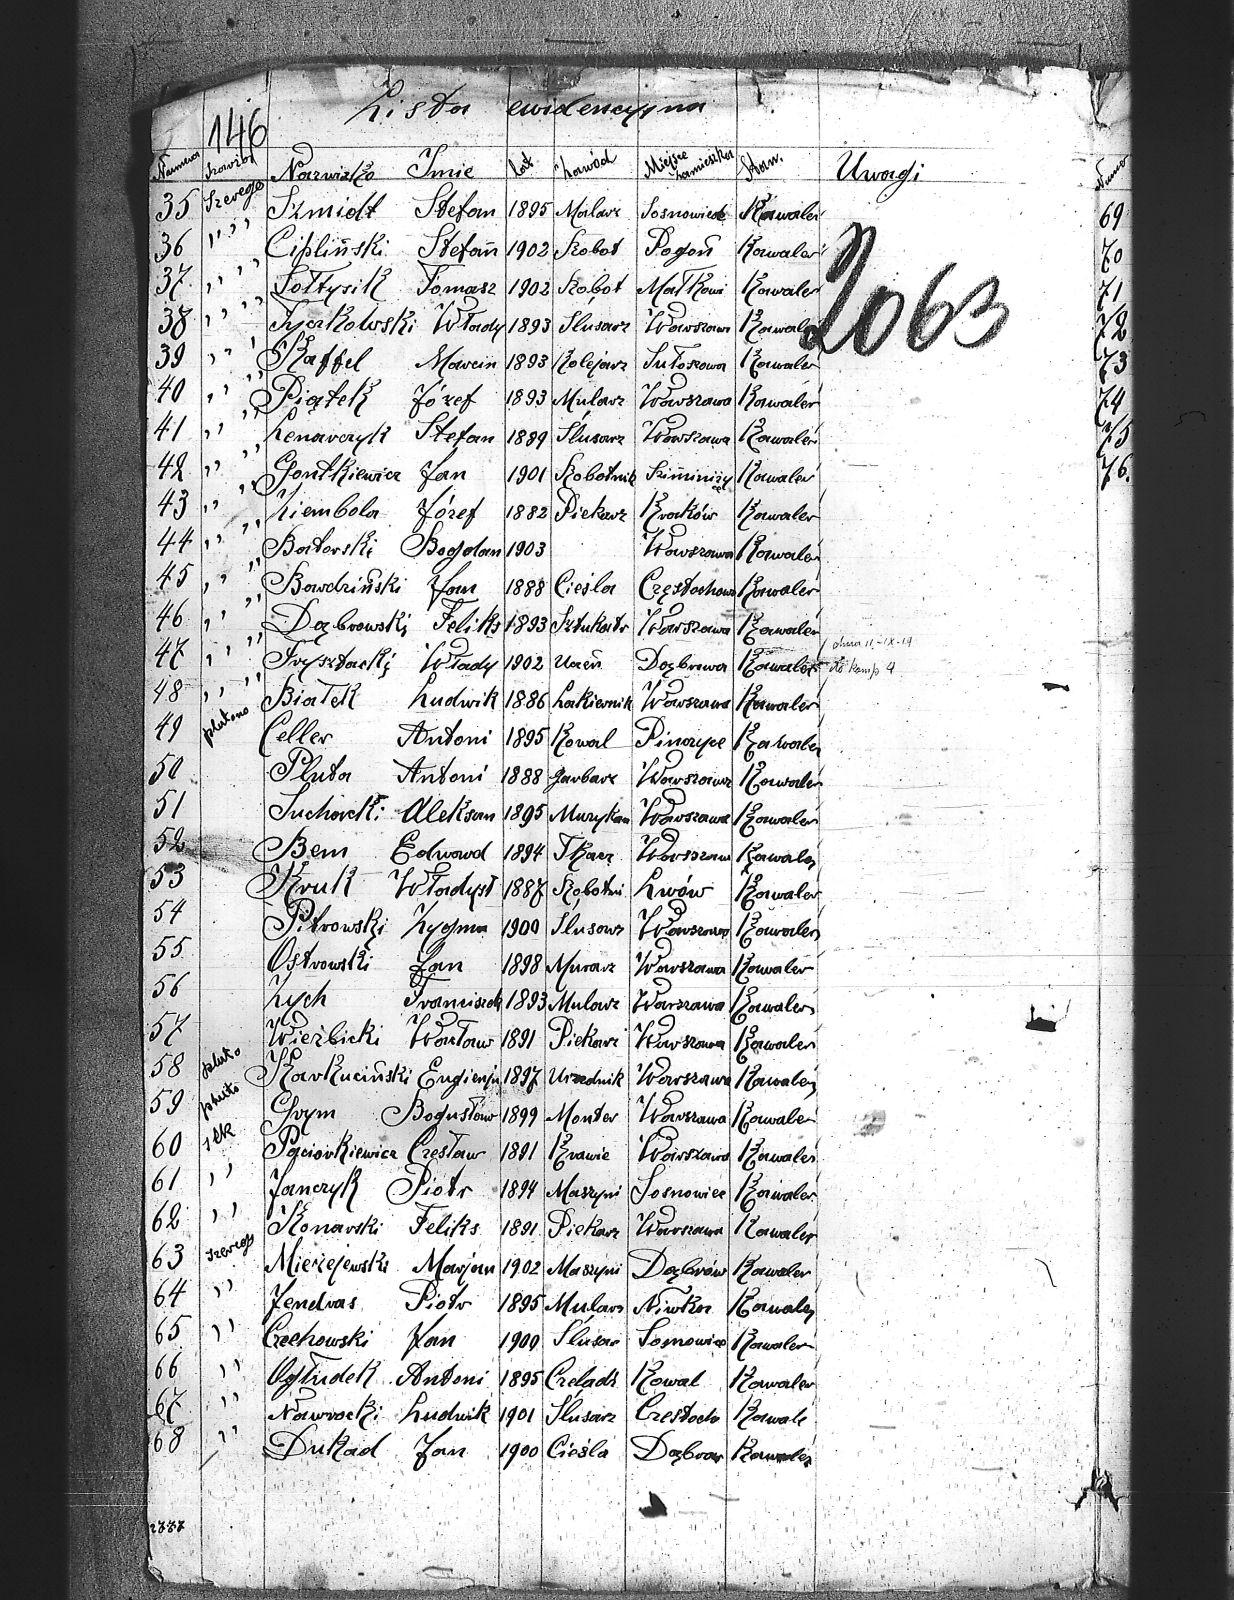 Lista ewidencyjna
146
Numera Nazwisko Imie Lat Zawód Miejsce zamieszka Stan. Uwagi
35 Szereg Szmidt Stefan 1895 Malarz Sosnowiec Kawaler
2063
36 " " Cipliński Stefan 1902 Szobot Pogoń Kawaler
37 " " Sołtysik Tomasz 1902 Szobot Kawaler
38 " " Włady 1893 Slusarz Warszaw Kawaler
39 " " Kaffel Marcin 1893 Kolejarz Sułoszowa Kawaler
40 " " Piątek Józef 1893 Mularz Warszawa Kawaler
41 " " Lenarczyk Stefan 1889 Slusarz Warszawa Kawaler
42 " " Gontkiewicz Jan 1901 Kawaler
43 " " Ziembola Józef 1882 Piekarz Kraków Kawaler
44 " " Batorski Bogdan 1903 Warszawa Kawaler
45 " " Jan 1888 Cieśla Częstochow Kawaler
46 " " Dąbrowski Feliks 1893 Sztukatr Warszawa Kawaler
47 " " Włady 1902 Uczeń Dąbrowa Kawaler dnia 11-IX-19
do komp 4
48 " " Białek Ludwik 1886 Lakiernik Warszawa Kawaler
49 plutono Celler Antoni 1895 Kowal Pinczyce Kawaler
50 Pluta Antoni 1888 Garbarz Warszawa Kawaler
51 Suchocki Aleksan 1895 Muzykan Warszawa Kawaler
52 Bem Edward 1894 Tkacz Warszaw Kawaler
53 Kruk Władysł 1887 Lwów Kawaler
54 Pitrowski Zygmu 1900 Slusarz Warszawa Kawaler
55 Ostrowski Jan 1898 Murarz Warszawa Kawaler
56 Zych Franciszek 1893 Mularz Warszawa Kawaler
57 Wierzbicki Wacław 1891 Piekarz Warszawa Kawaler
58 pluto Karkuciński Eugienju 1897 Urzednik Warszawa Kawaler
59 pluto Grym Bogusław 1899 Monter Warszawa Kawaler
60 Paciorkiewicz Czesław 1891 Krawie Warszawa Kawaler
61 " Janczyk Piotr 1894 Maszyni Sosnowiec Kawaler
62 " Konarski Feliks 1891 Piekarz Warszawa Kawaler
63 szereg Mierzejewski Marjan 1902 Maszyni Dąbrów Kawaler
64 " Jendras Piotr 1895 Mularz Niwka Kawaler
65 " Czechowski Jan 1900 Slusar Sosnowiec Kawaler
66 " Antoni 1895 Czeladz Kowal Kawaler
67 " Nawrocki Ludwik 1901 Slusarz Czestoch Kawale
68 " Dukad Jan 1900 Cieśla Dąbrow Kawaler
69
70
71
72
73
74
75
76.